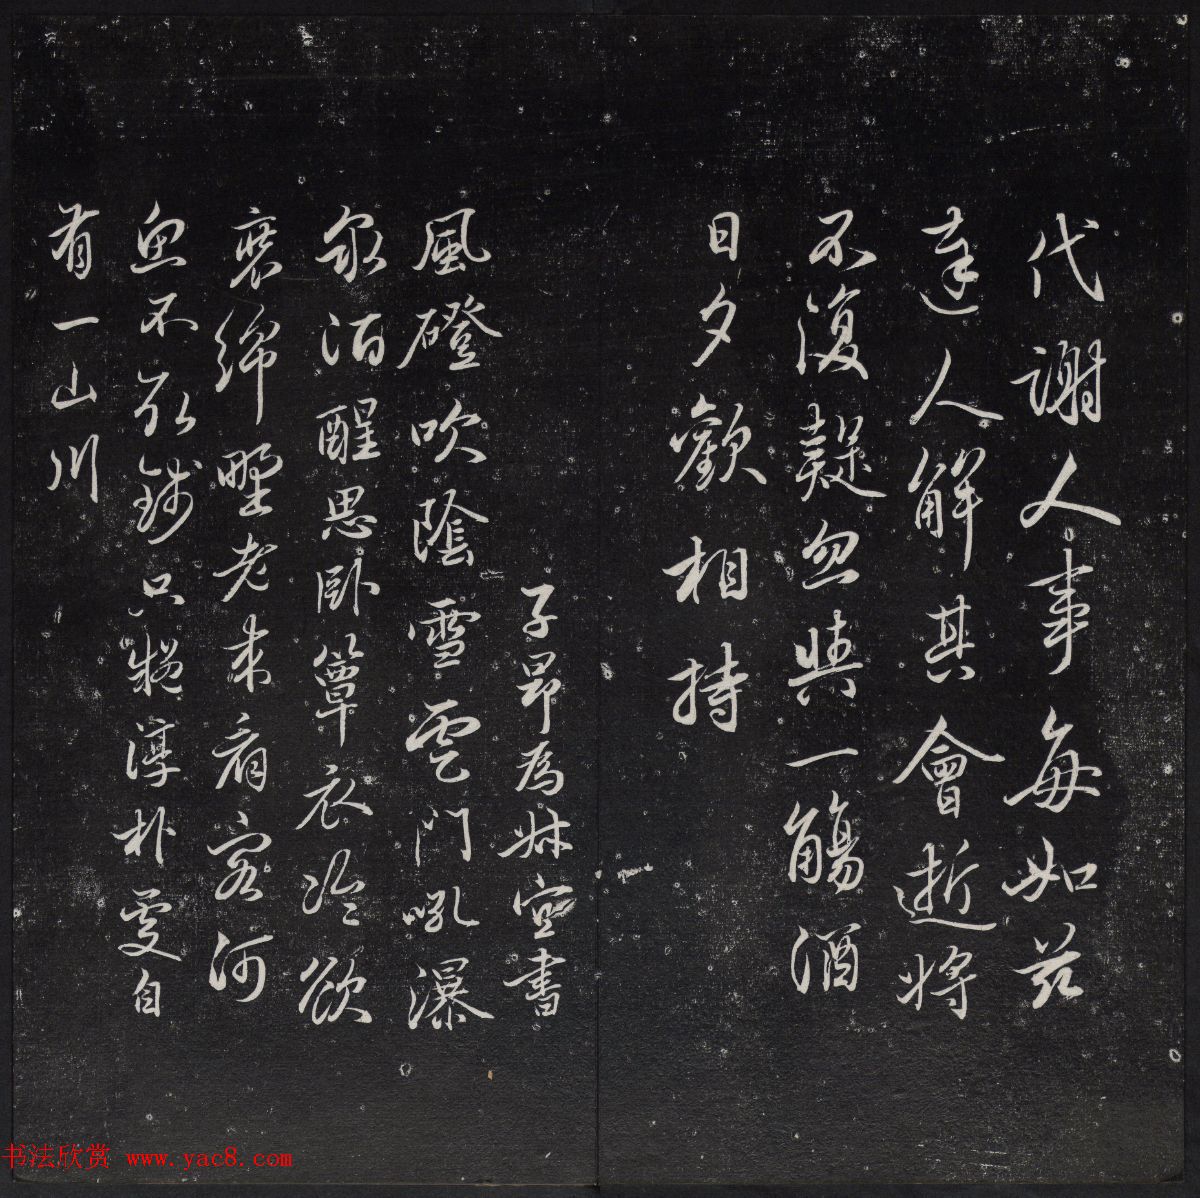 代謝人事每如茲
達人解其會逝將
不復疑忽與一觴酒
日夕歡相持
子昂為妹宜書
風磴吹陰雪雲門吼瀑
泉酒醒思臥簟衣冷欲
裘綿野老來看客河
魚不取錢只疑淳朴處自
有一山川
书法欣赏 www.yac8.com